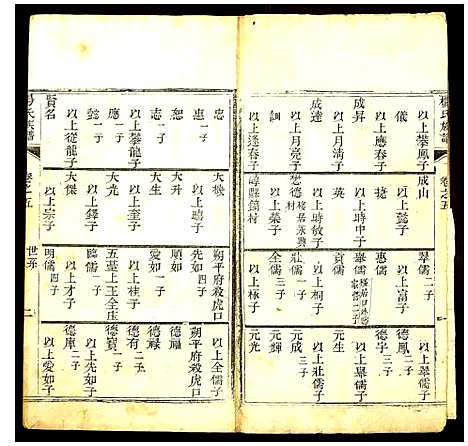 楊氏族譜
卷之五
一
以上攀鳳子
儀
以上應春子
成昇
以上月清子
成達
以上月亮子
以上逢春子
成山
以上懿子
捷
以上時中子
英
以上時敏子
懋德 移居永興
譚縣鎮村
以上榮子
翠儒 二子
以上富子
惠儒
舉儒
貢儒
以上桐子
壯儒 一子
全儒 三子
以上棟子
德鳳 二子
德宇 三子
以上舉儒子
元生
以上壯儒子
元成 三子
元輝
元光
忠
惠 一子
以上攀子
恕
志 一子
應 一子
懿 一子
以上攀龍子
賢名
以上從龍子
以上聰子
大升
大生
以上奎子
大光
以上鐸子
大傑
以上宗子
朔平府殺虎口
先如 四子
順如
愛如 一子
以上桂子
五臺上王全莊
臨儒 一子
以上才子
明儒 四子
以上全儒子
朔平府殺虎口
德福
德祿
德有 二子
德寶 一子
以上先如子
德庫 二子
以上愛如子
楊氏族譜
卷之五
世系
二